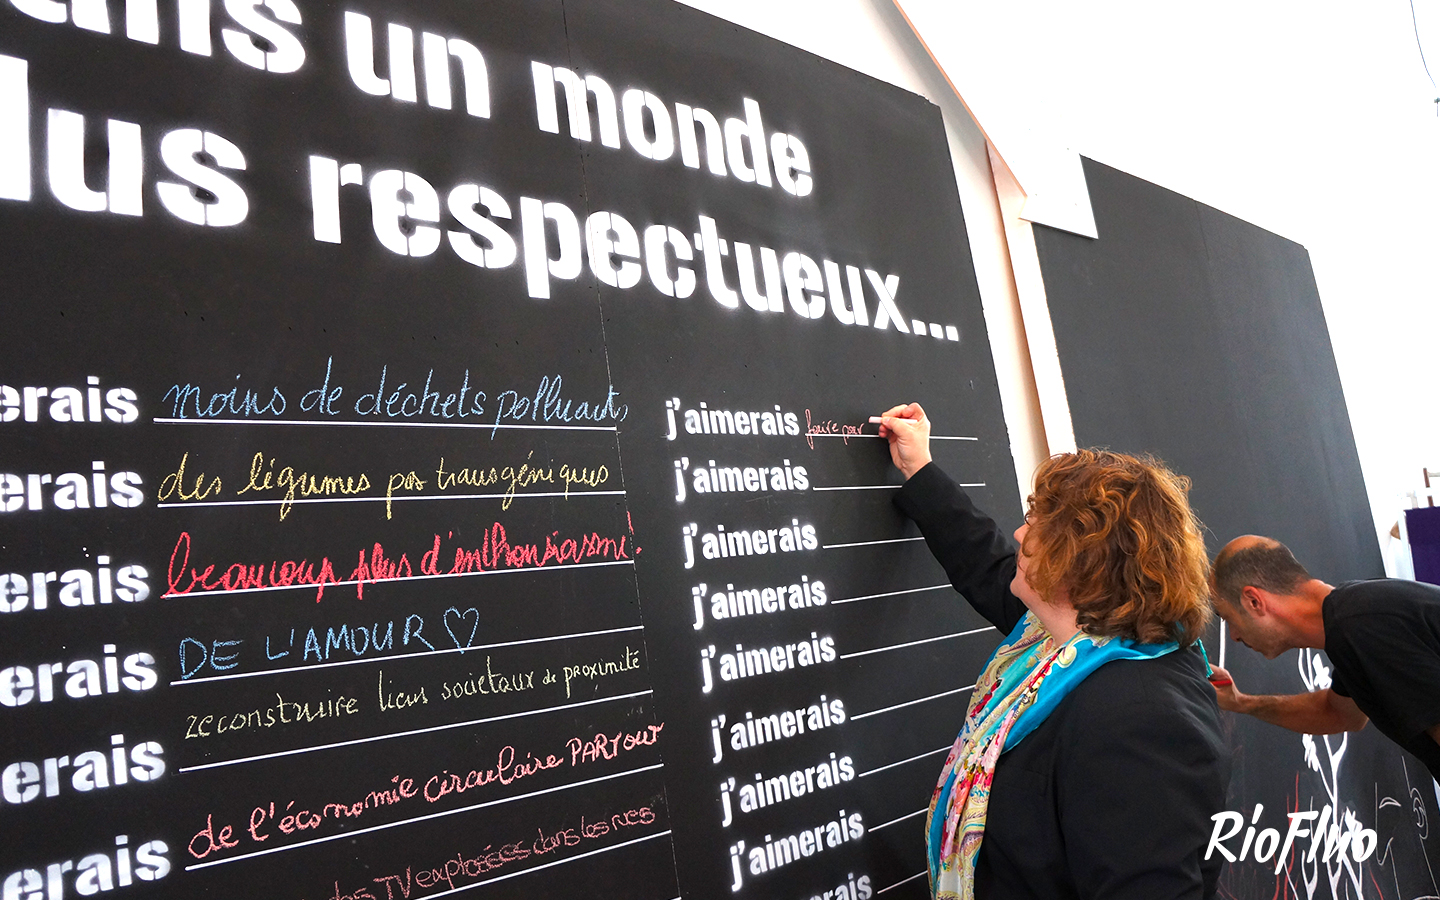 ans un monde
lus respectueux...
erais moins de déchets polluants
erais des légumes pas transgéniques
erais beaucoup plus d'enthousiasme!
erais DE L'AMOUR ♡
erais reconstruire liens sociétaux de proximité
erais de l'économie circulaire PARTOUT
des TV explosées dans les rues
j'aimerais faire pour
j'aimerais
j'aimerais
j'aimerais
j'aimerais
j'aimerais
j'aimerais
j'aimerais
merais
RioFluo